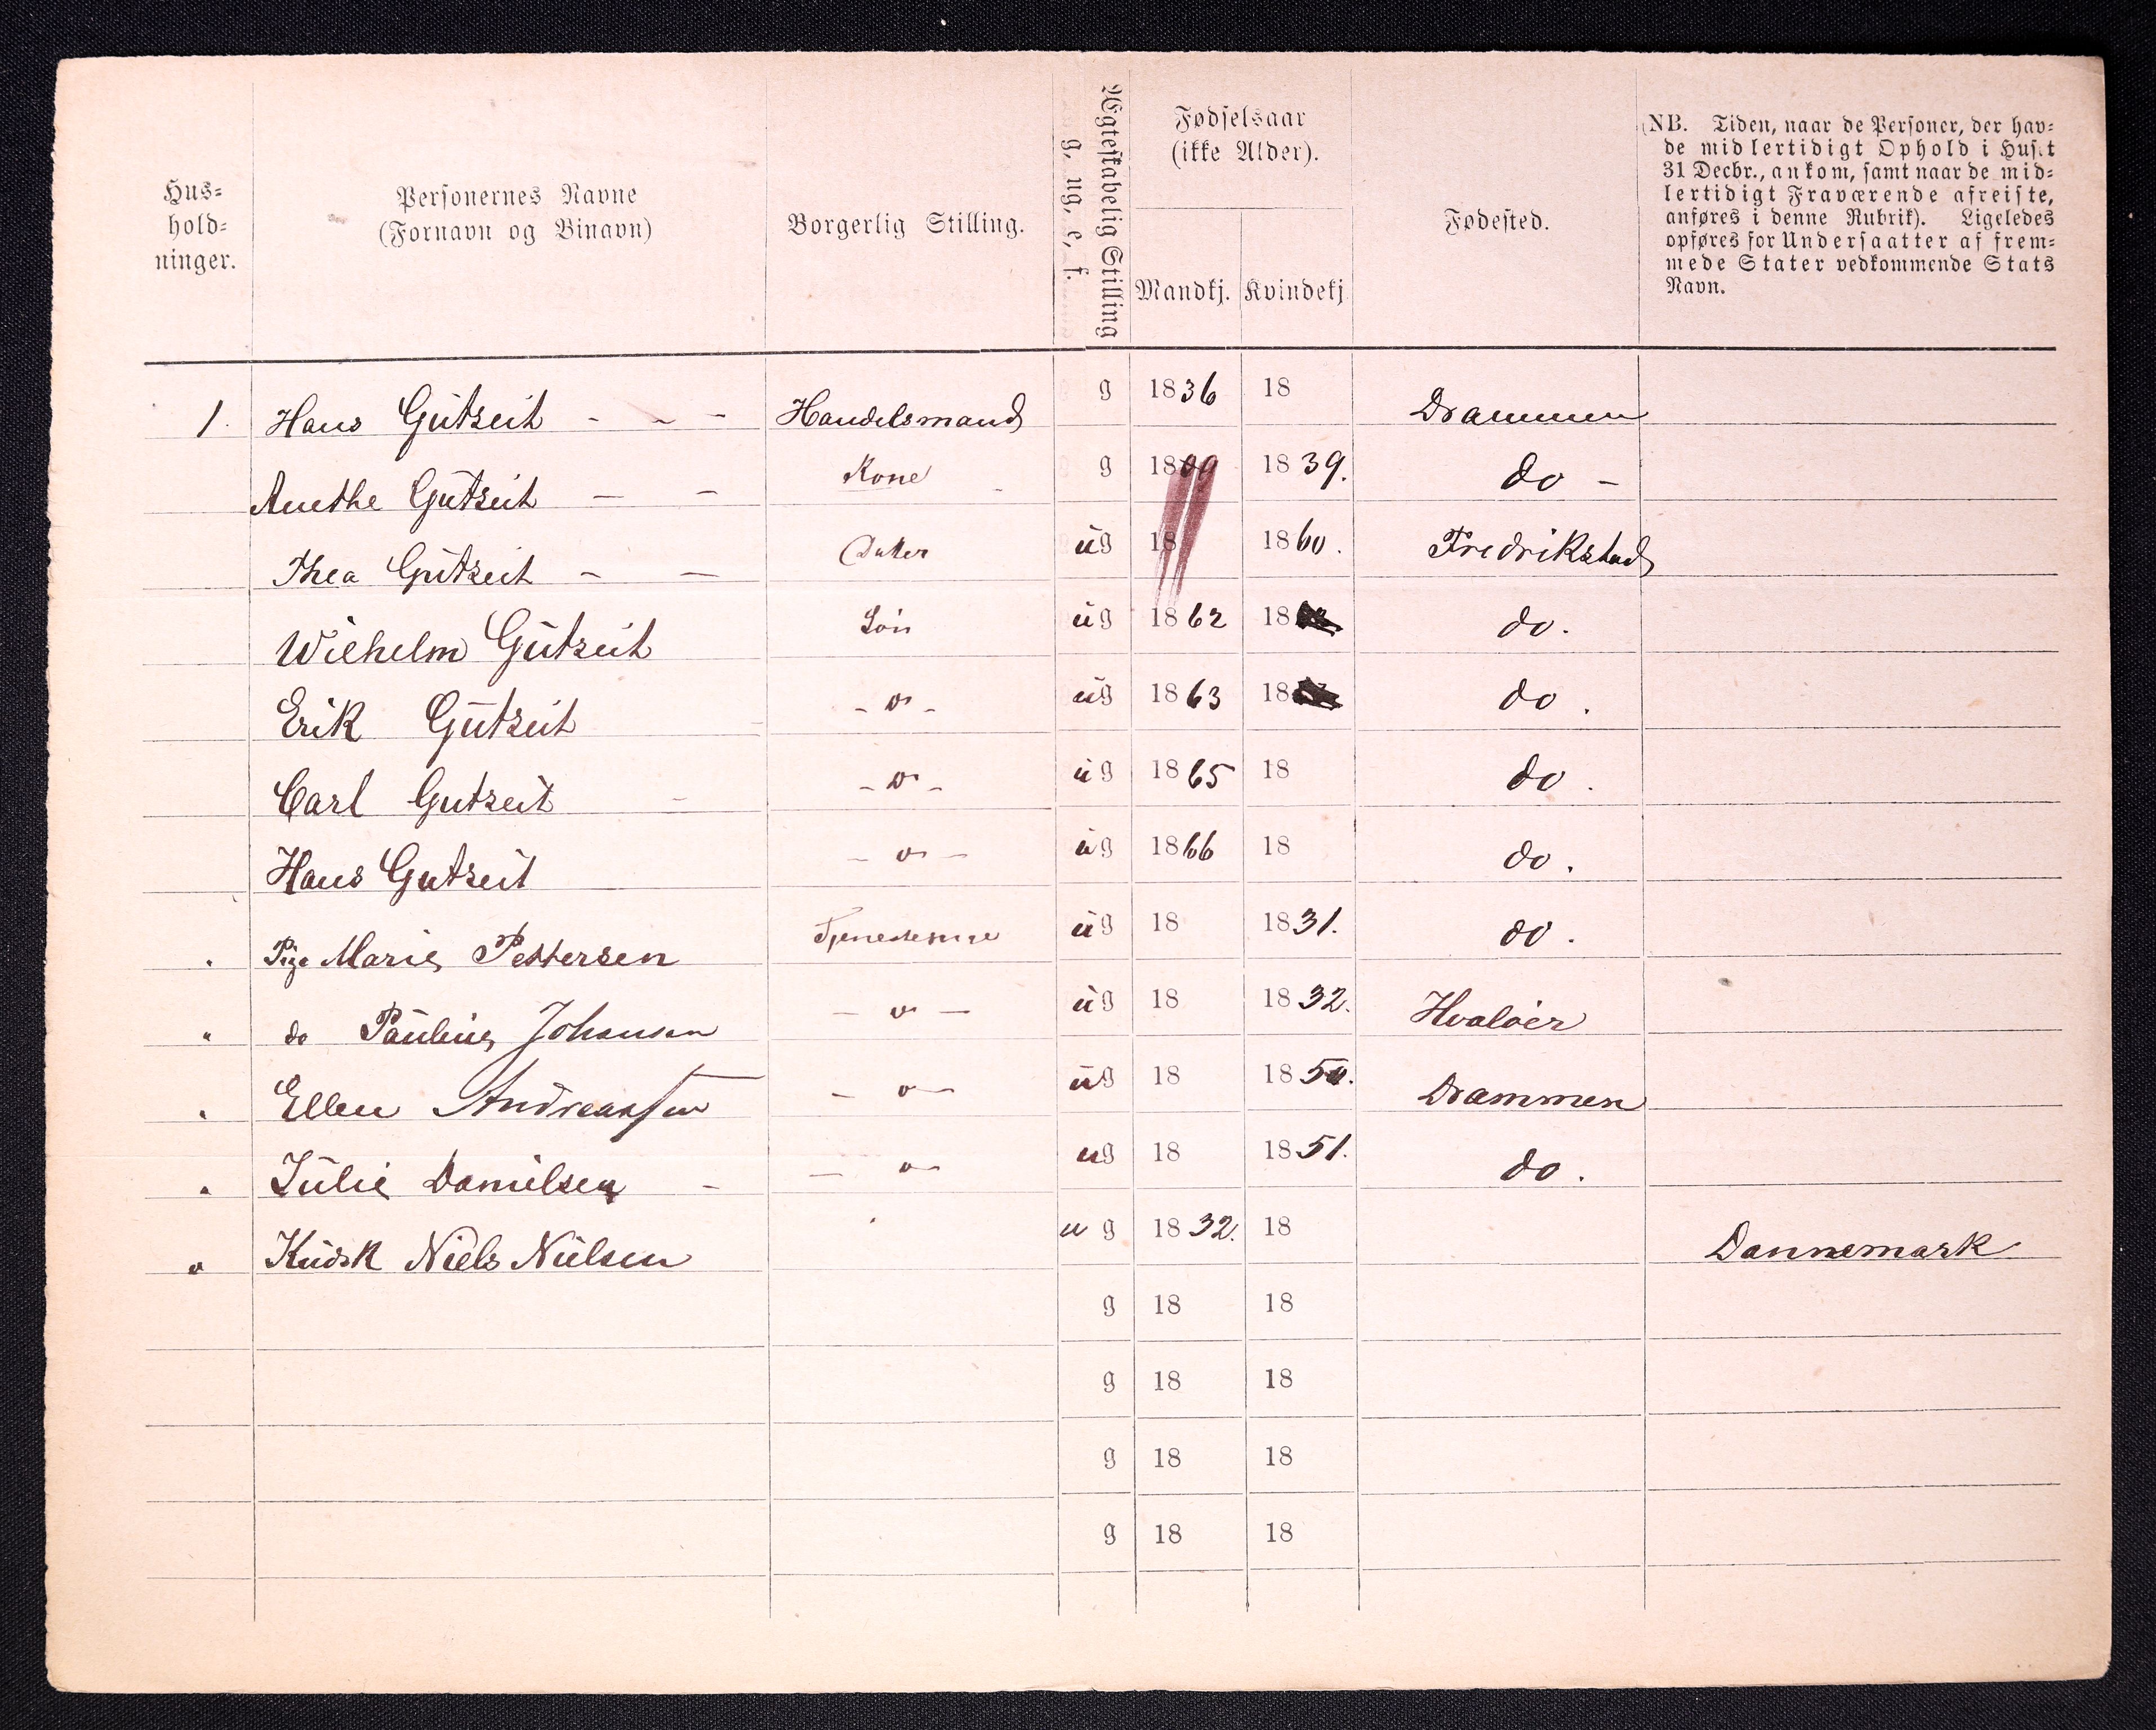 Hus-
hold-
ninger.
Personernes Navne
(Fornavn og Binavn)
Borgerlig Stilling.
Ægteskabelig Stilling
g, ug, e, f.
Fødselsaar
(ikke Alder).
Mandkj. Kvindekj
Fødested.
(NB. Tiden, naar de Personer, der hav-
de midlertidigt Ophold i Huset
31 Decbr., ankom, samt naar de mid-
lertidigt Fraværende afreiste,
anføres i denne Rubrik). Ligeledes
opføres for Undersaatter af frem-
mede Stater vedkommende Stats
Navn.
1. Hans Gutzeit - - - Handelsmand g 1836 18 Drammen
Anethe Gutzeit - - Kone g 18 1839. do -
Thea Gutzeit - - Datter ug 18 1860. Fredrikstad
Wilhelm Gutzeit Søn ug 1862 18 do.
Erik Gutzeit - " - ug 1863 18 do.
Carl Gutzeit - - " - ug 1865 18 do.
Hans Gutzeit - " - ug 1866 18 do.
" Pige Marie Pettersen Tjenestepige ug 18 1831. do.
" do Pauline Johansen - " - ug 18 1832. Hvaløer
" Ellen Andreassen - " - ug 18 1850. Drammen
" Julie Danielsen - - " - ug 18 1851. do.
" Kudsk Niels Nielsen ug 1832. 18 Dannemark
g 18 18
g 18 18
g 18 18
g 18 18